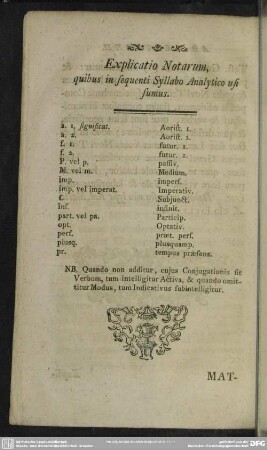 Explicatio Notarum,
quibus in sequenti Syllabo Analytico usi
sumus.
a. 1, significat. Aorist. 1.
a. 2. Aorist. 1.
f. 1. futur. 1.
f. 2. futur. 2.
P. vel p. passiv.
M. vel m. Medium.
imp. imperf.
imp. vel imperat. Imperativ.
f. Subjunct.
Inf. infinit.
part. vel pa. Particip.
opt. Optativ.
perf. præt. perf.
plusq. plusquamp.
pr. tempus præsens.
NB. Quando non additur, cujus Conjugationis sit
Verbum, tum intelligitur Activa, & quando omit-
titur Modus, tum Indicativus subintelligitur.
MAT-